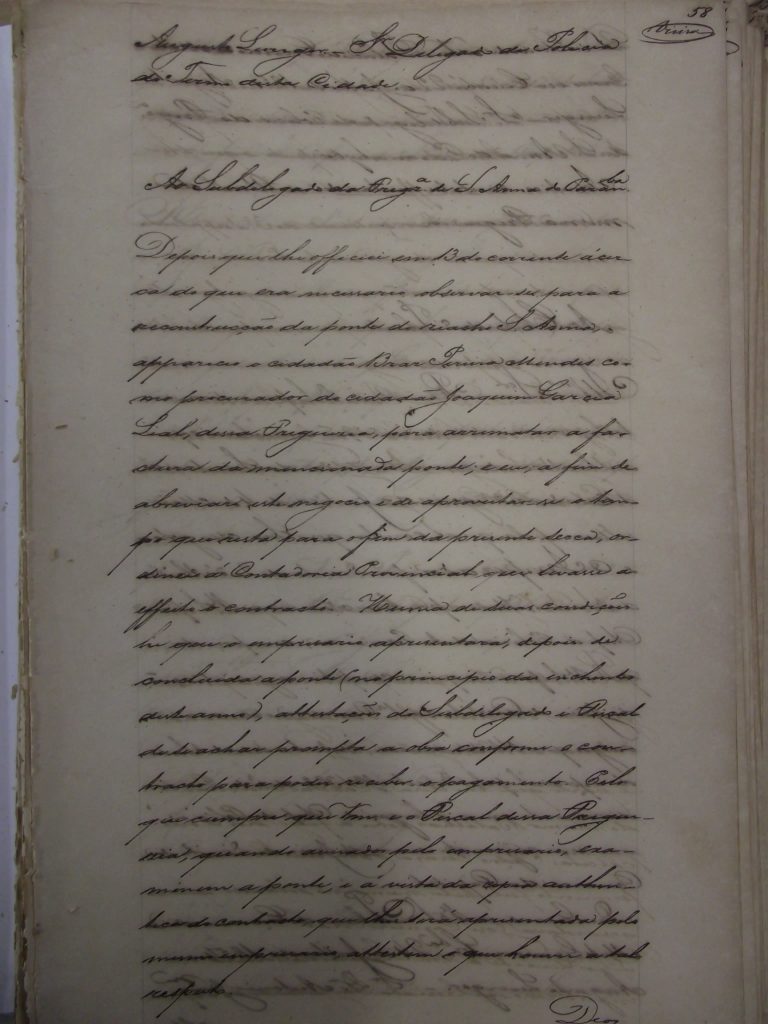 58
Vieira
Augusto Leverger = Sr. Delegado de Policia
do Termo desta Cidade.
Ao Subdelegado da Freg.ª de S. Anna do Paran.ba
Depois que lhe officiei em 13 do corrente ácer-
ca do que era necessario observar-se para a
reconstrucção da ponte do riacho S. Anna,
appareceo o cidadão Braz Pereira Mendes co-
mo procurador do cidadão Joaquim Garcia
Leal, dessa Freguezia, para arrematar a fa-
ctura da mencionada ponte; e eu, a fim de
abreviar este negocio e de aproveitar-se o tem-
po que resta para o fim da presente secca, or-
denei á Contadoria Provincial que levasse a
effeito o contracto. Huma de suas condições
he que o empresario apresentará, depois de
concluida a ponte (no principio das enchentes
deste anno), attestações do Subdelegado e Fiscal
de se achar prompta a obra conforme o con-
tracto para poder receber o pagamento. Pelo
que cumpre que Vm. e o Fiscal dessa Fregue-
zia, quando avisados pelo empresario, exa-
minem a ponte, e á vista da copia authen-
tica do contracto, que lhes será apresentada pelo
mesmo empresario, attestem o que houver a tal
respeito.
Deos